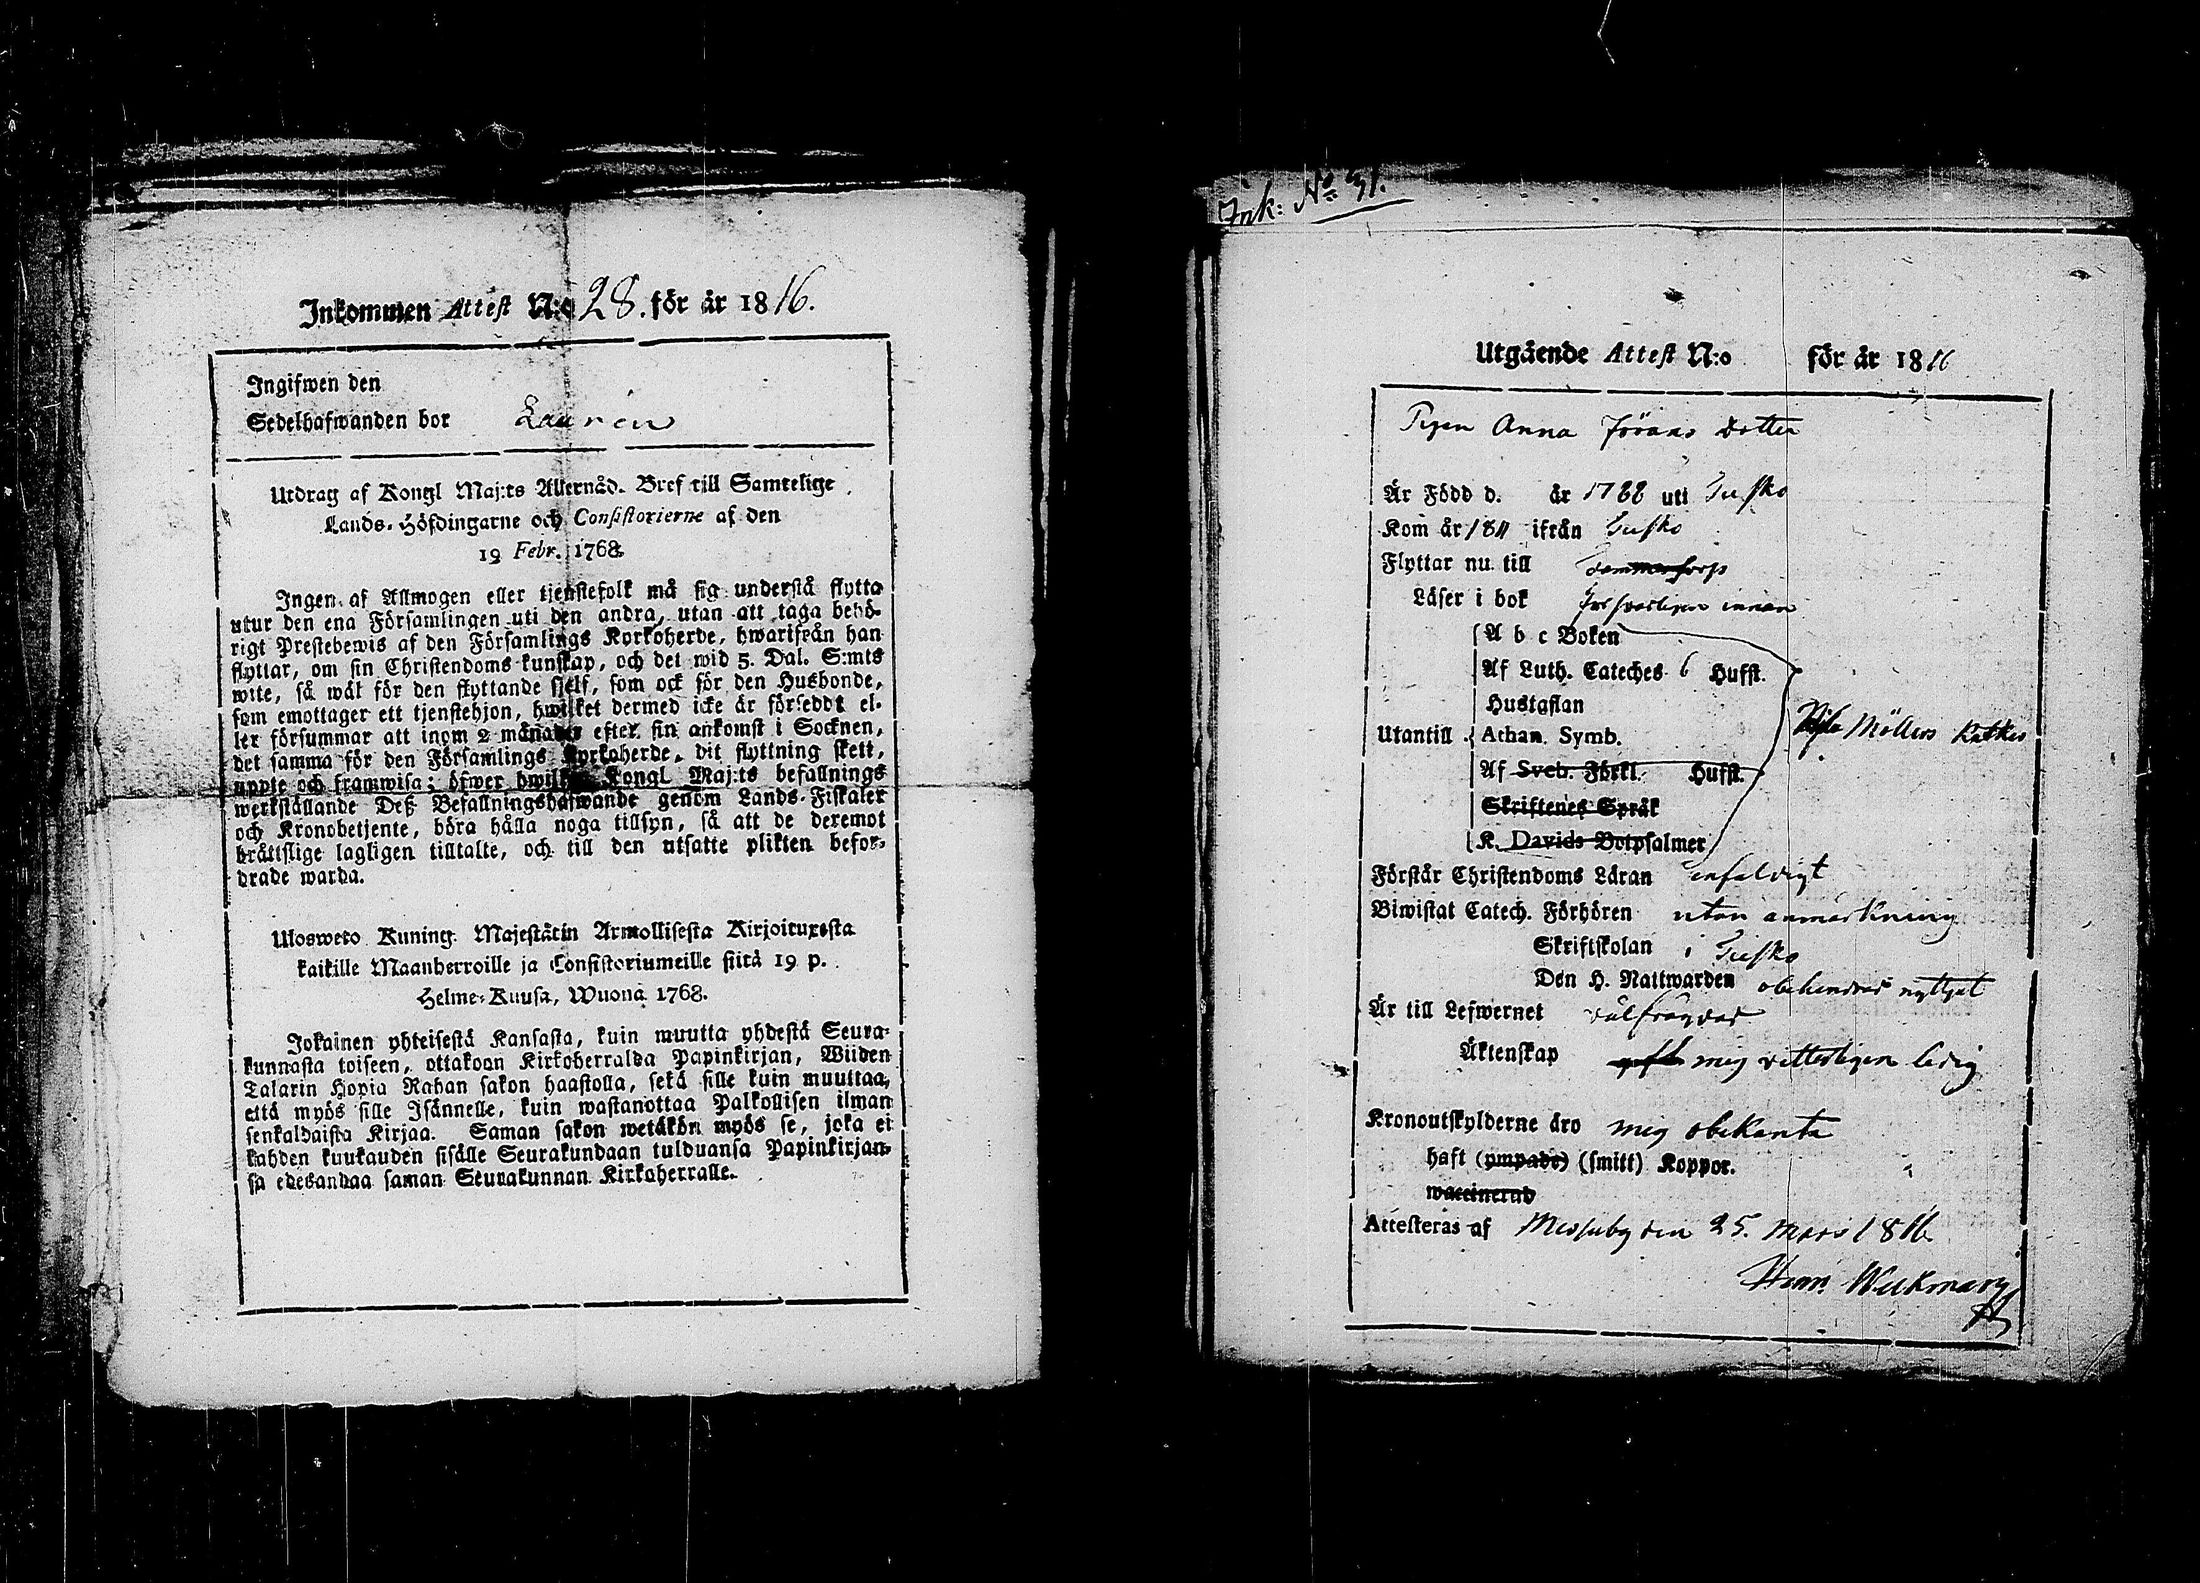 Inkommen Attest N:o 28. för år 1816.
Ingifwen den
Sedelhafwanden bor Laurén
Utdrag af Kongl Maj:ts Allernåd. Bref till Samtelige
Lands-Höfdingarne och Consistorierne af den
19 Febr. 1768.
Ingen af Allmogen eller tjenstefolk må sig understå flytta
utur den ena Församlingen uti den andra, utan att taga behö-
rigt Prestebewis af den Församlings Kyrkoherde, hwarifrån han
flyttar, om sin Christendoms kunskap, och det wid 5. Dal. S:mts
wite, så wäl för den flyttande sjelf, som ock för den Husbonde,
som emottager ett tjenstehjon, hwilket dermed icke är förseddt el-
ler försummar att inom 2 månader efter sin ankomst i Socknen,
det samma för den Församlings Kyrkoherde, dit flyttning skett,
uppte och framwisa; öfwer hwilket Kongl Maj:ts befallnings
werkställande Deß Befallningshafwande genom Lands-Fiskaler
och Kronobetjente, böra hålla noga tillsyn, så att de deremot
bråttslige lagligen tilltalte, och till den utsatte plikten befor-
drade warda.
Ulosweto Kuning. Majestätin Armollisesta Kirjoituxesta
kaikille Maanherroille ja Consistoriumeille siitä 19 p.
Helme-Kuusa, Wuonã 1768.
Jokainen yhteisestä Kansasta, kuin muutta yhdestä Seura-
kunnasta toiseen, ottakoon Kirkoherralda Papinkirjan, Wiiden
Talarin Hopia Rahan sakon haastolla, sekä sille kuin muuttaa,
että myös sille Isännelle, kuin wastanottaa Palkollisen ilman
senkaldaista Kirjaa. Saman sakon wetäkön myös se, joka ei
kahden kuukauden sisälle Seurakundaan tulduansa Papinkirjan-
sa edesandaa saman Seurakunnan Kirkoherralle.
Ink: No 31.
Utgående Attest N:o för år 1816
Pigan Anna Jörans dotter
Är Född d. år 1788 uti Tusko
Kom år 1811 ifrån Tusko
Flyttar nu till
Läser i bok försvarligen innan
A b c Boken
Af Luth. Cateches 6 Hufst.
Hustaflan
Utantill Athan. Symb. Möllers Katkes
Af Sveb. Förkl. Hufst.
Skriftenes Språk
K. Davids Botpsalmer
Förstår Christendoms Läran enfaldigt
Biwistat Catech. Förhören utan anmärkning
Skriftskolan i Tusko
Den H. Nattwarden obehindrad nyttjat
Är till Lefwernet välfrägdad
Äktenskap mig vitterligen ledig
Kronoutskylderne äro mig obekanta
haft (ympade) (smitt) Koppor.
waccinerad
Attesteras af Messuby den 25. Mars 1816
Henr. Weckman